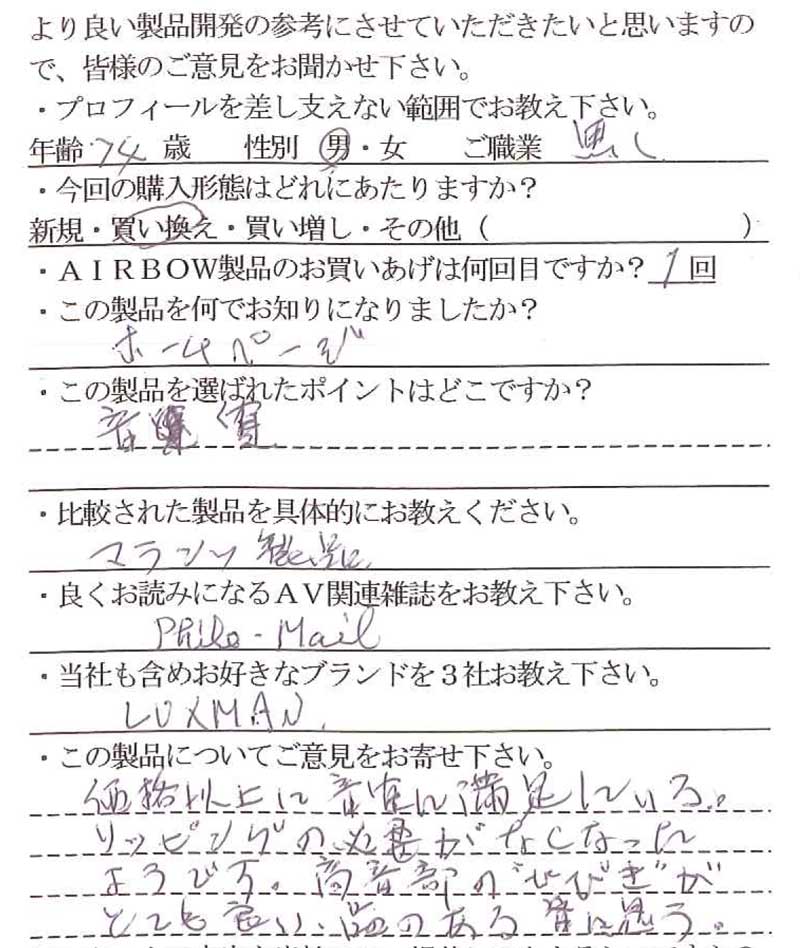 より良い製品開発の参考にさせていただきたいと思いますの
で、皆様のご意見をお聞かせ下さい。
・プロフィールを差し支えない範囲でお教え下さい。
年齢 74 歳 性別 男・女 ご職業 無し
・今回の購入形態はどれにあたりますか？
新規・買い換え・買い増し・その他（ ）
・ＡＩＲＢＯＷ製品のお買いあげは何回目ですか？ 1 回
・この製品を何でお知りになりましたか？
ホームページ
・この製品を選ばれたポイントはどこですか？
音質
・比較された製品を具体的にお教えください。
マランツ製品
・良くお読みになるＡＶ関連雑誌をお教え下さい。
Phile-Mail
・当社も含めお好きなブランドを３社お教え下さい。
LUXMAN.
・この製品についてご意見をお寄せ下さい。
価格以上に音質に満足している。
リッピングの必要がなくなった
ようです。高音部の"ひびき"が
とても良い、品のある音に思う。